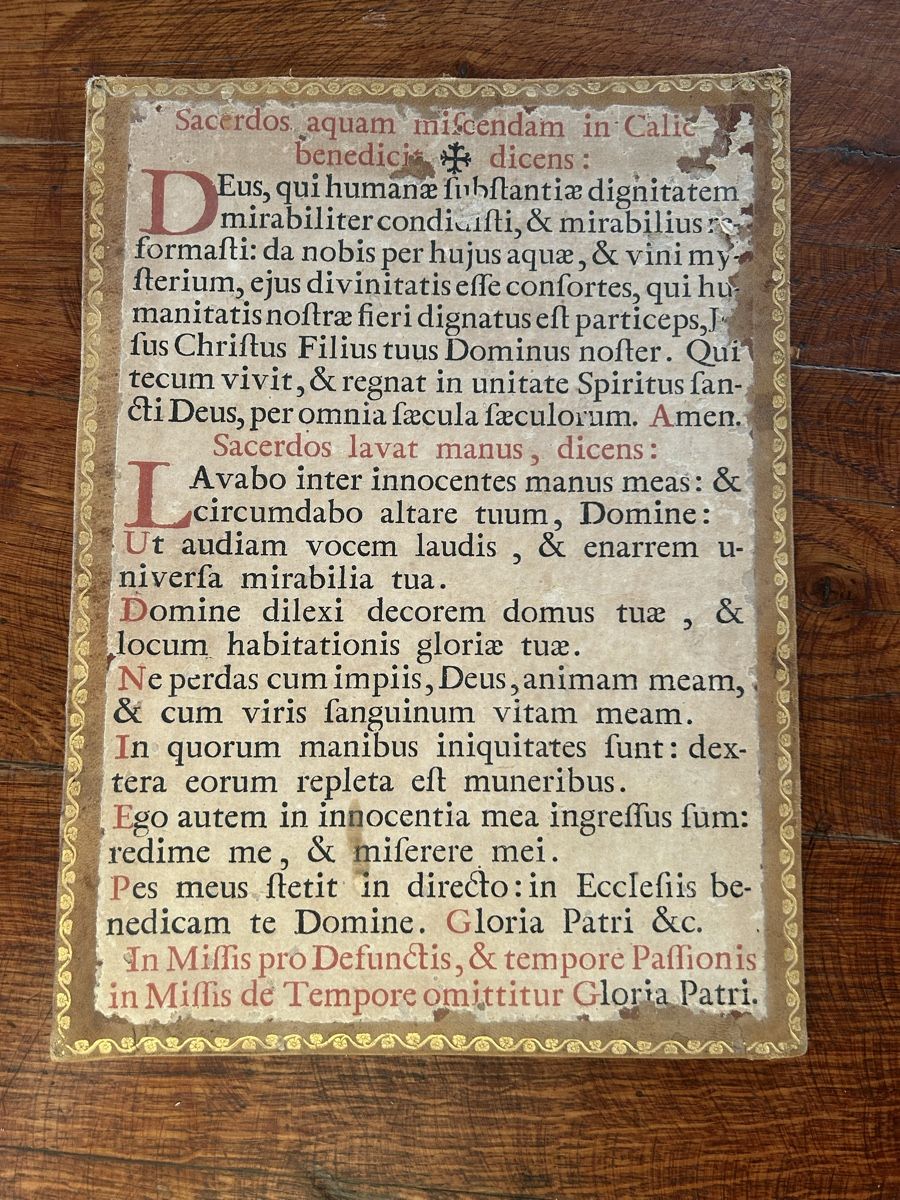 Sacerdos aquam miſcendam in Calic
benedicit ✠ dicens:
DEus, qui humanæ ſubſtantiæ dignitatem
mirabiliter condidiſti, & mirabilius re-
formaſti: da nobis per hujus aquæ, & vini my-
ſterium, ejus divinitatis eſſe conſortes, qui hu-
manitatis noſtræ fieri dignatus eſt particeps, J
ſus Chriſtus Filius tuus Dominus noſter. Qui
tecum vivit, & regnat in unitate Spiritus ſan-
cti Deus, per omnia ſæcula ſæculorum. Amen.
Sacerdos lavat manus, dicens:
LAvabo inter innocentes manus meas: &
circumdabo altare tuum, Domine:
Ut audiam vocem laudis, & enarrem u-
niverſa mirabilia tua.
Domine dilexi decorem domus tuæ, &
locum habitationis gloriæ tuæ.
Ne perdas cum impiis, Deus, animam meam,
& cum viris ſanguinum vitam meam.
In quorum manibus iniquitates ſunt: dex-
tera eorum repleta eſt muneribus.
Ego autem in innocentia mea ingreſſus ſum:
redime me, & miſerere mei.
Pes meus ſtetit in directo: in Eccleſiis be-
nedicam te Domine. Gloria Patri &c.
In Miſſis pro Defunctis, & tempore Paſſionis
in Miſſis de Tempore omittitur Gloria Patri.